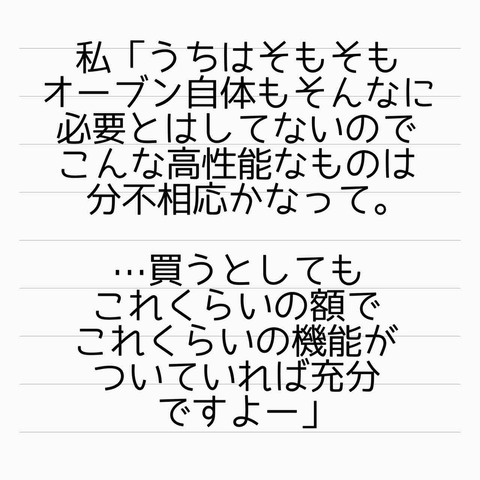 私「うちはそもそも
オーブン自体もそんなに
必要とはしてないので
こんな高性能なものは
分不相応かなって。
…買うとしても
これくらいの額で
これくらいの機能が
ついていれば充分
ですよー」